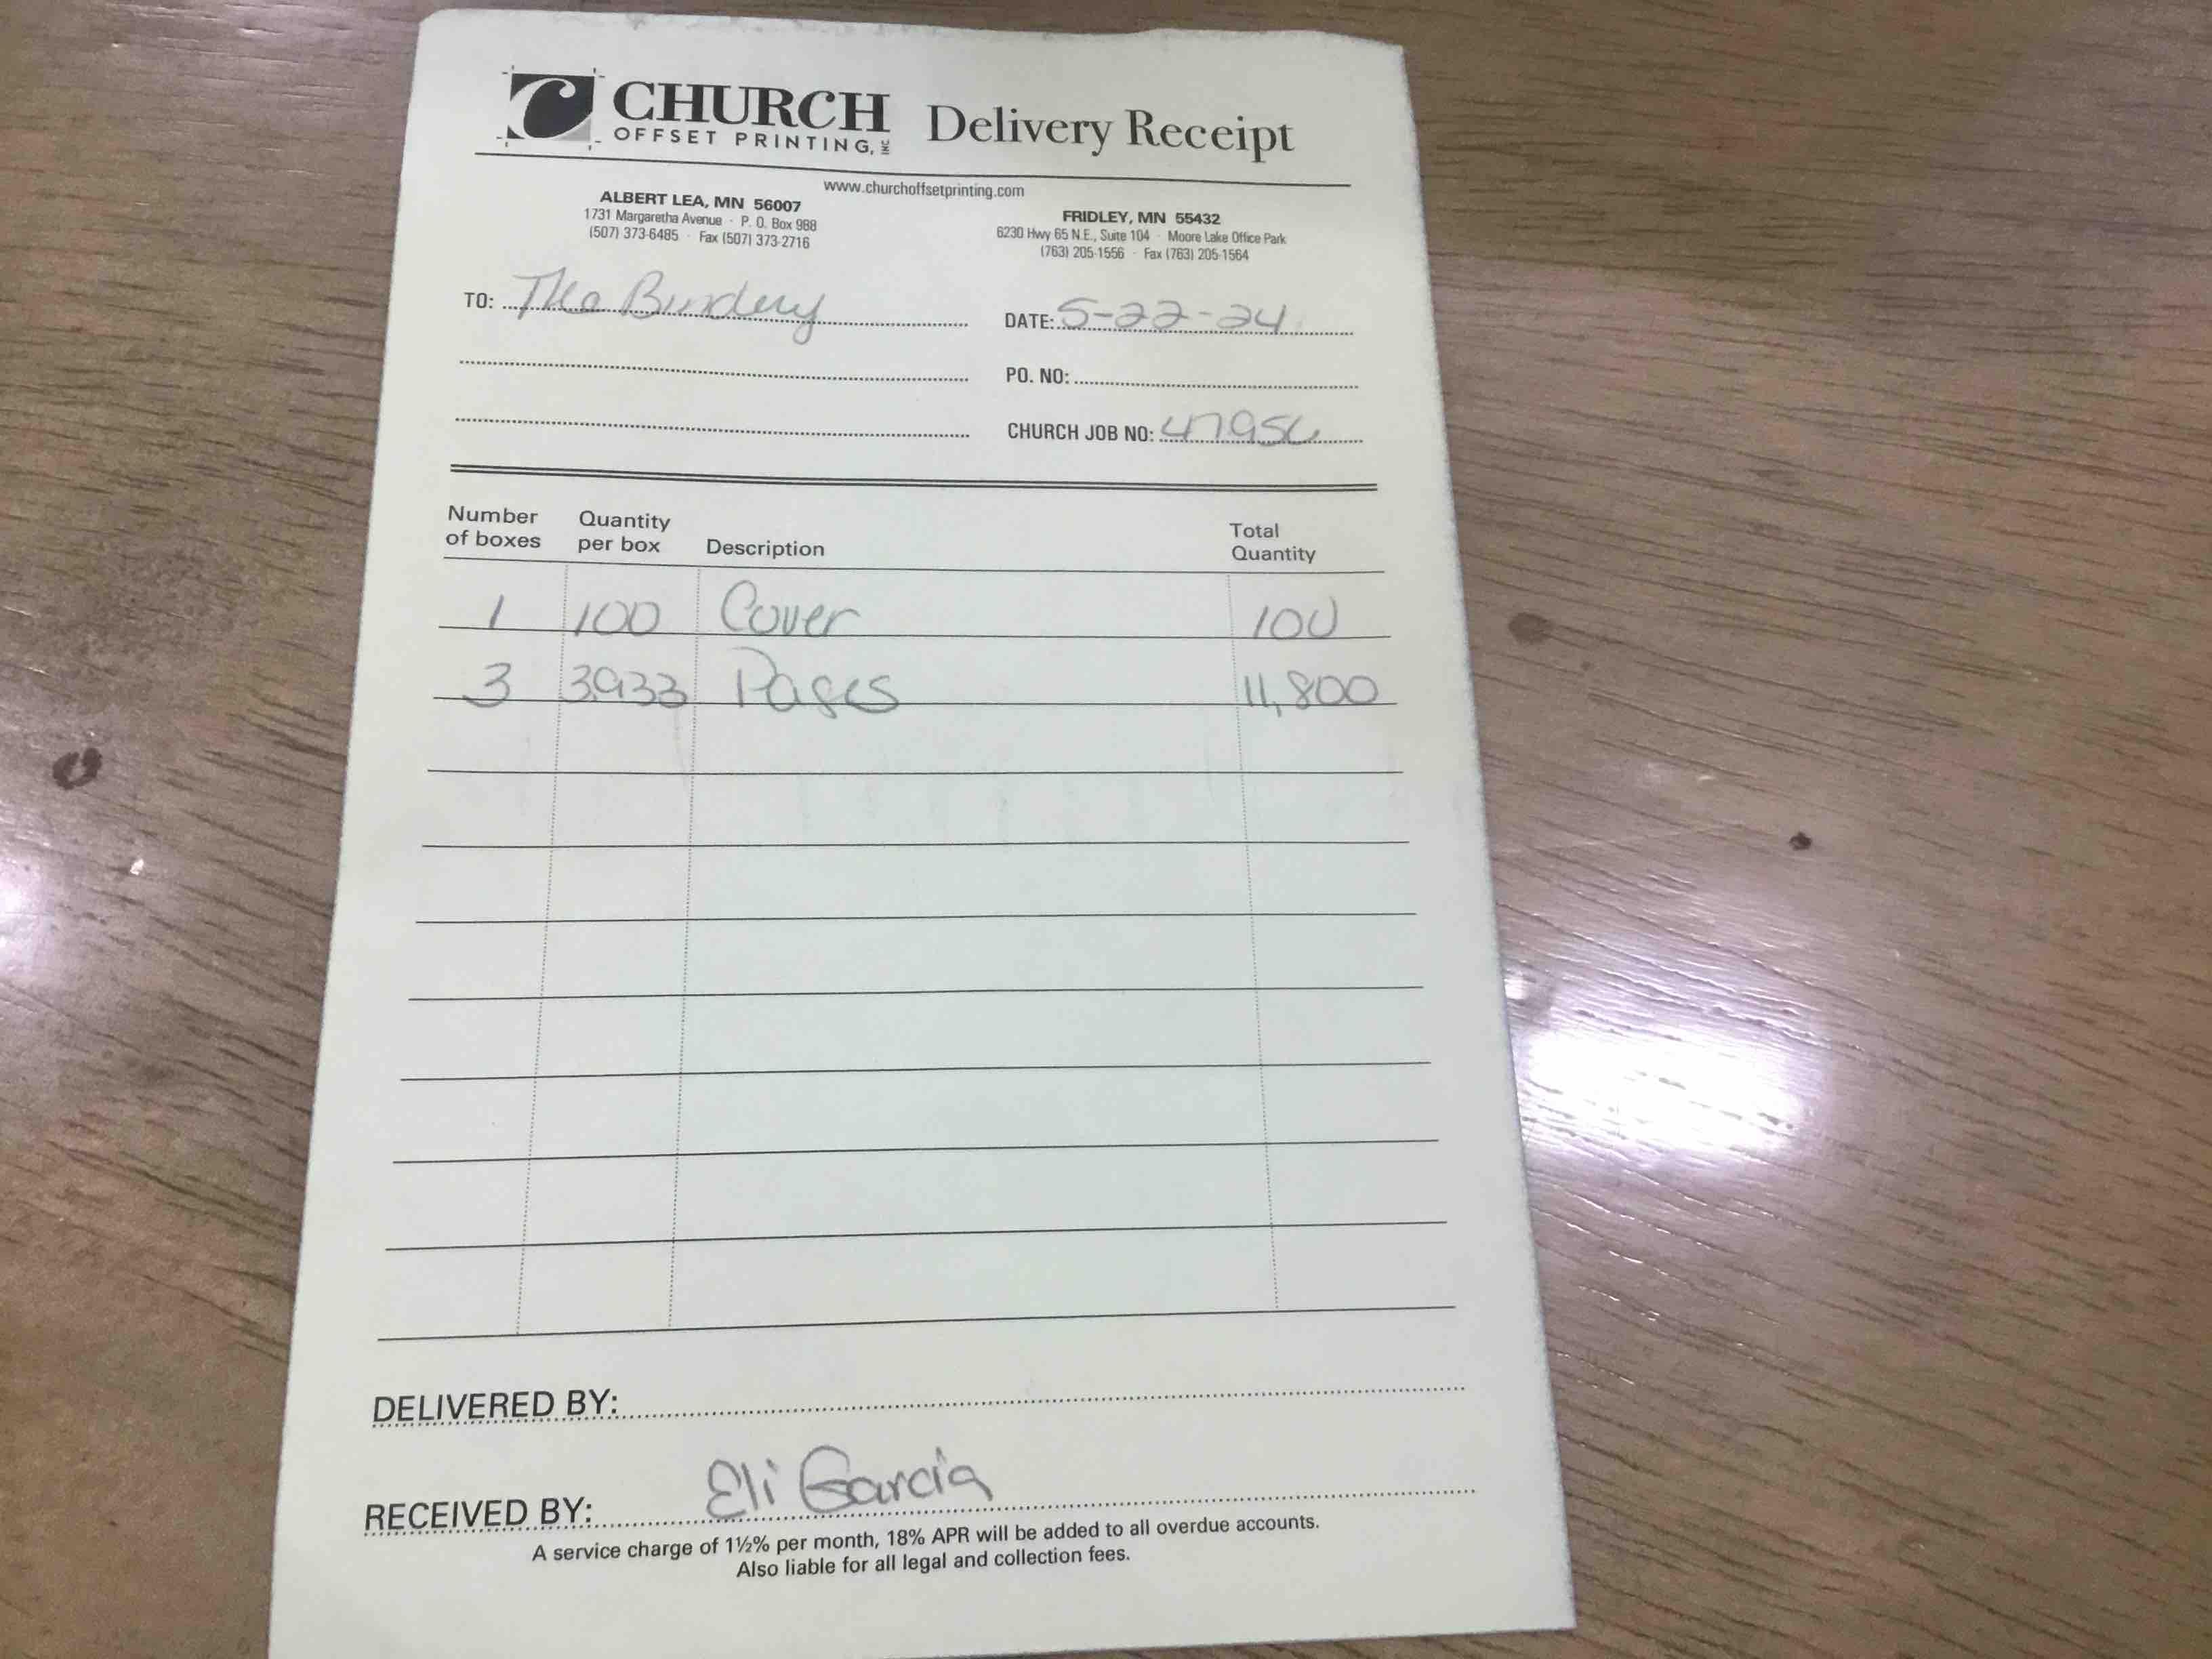 CHURCH
OFFSET PRINTING, INC
Delivery Receipt
www.churchoffsetprinting.com
ALBERT LEA, MN 56007
1731 Margaretha Avenue · P. O. Box 988
(507) 373-6485 · Fax (507) 373-2716
FRIDLEY, MN 55432
6230 Hwy 65 N.E., Suite 104 · Moore Lake Office Park
(763) 205-1556 · Fax (763) 205-1564
TO: The Bindery
DATE: 5-22-24
PO. NO:
CHURCH JOB NO: 47956
Number of boxes Quantity per box Description Total Quantity
1 100 Cover 100
3 3,933 Pages 11,800
DELIVERED BY:
RECEIVED BY: Eli Garcia
A service charge of 1½% per month, 18% APR will be added to all overdue accounts.
Also liable for all legal and collection fees.